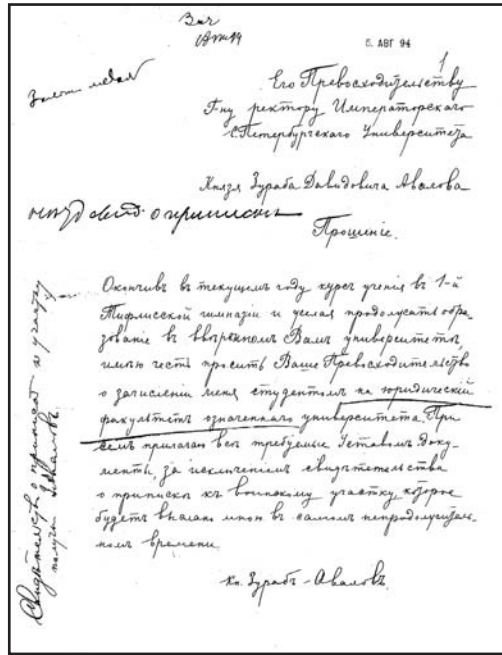 5. АВГ 94
1
Золот. медал
Его Превосходительству
Г-ну ректору Императорскаго
С.Петербургскаго Университета
Князя Зураба Давидовича Авалова
о приписки
Прошеніе.
Окончивъ въ текущемъ году курсъ ученія въ 1-й
Тифлисской гимназіи и желая продолжать обра-
зованіе въ ввѣренномъ Вамъ университетѣ,
имѣю честь просить Ваше Превосходительство
о зачисленіи меня студентомъ на юридическій
факультетъ означеннаго университета. При
семъ прилагаю всѣ требуемые Уставомъ доку-
менты, за исключеніемъ свидѣтельства
о припискѣ къ воинскому участку, которое
будетъ выслано мною въ самомъ непродолжитель-
номъ времени.
Кн. Зурабъ-Аваловъ.
Свидѣтельство о припискѣ къ участку
получилъ З. Аваловъ.